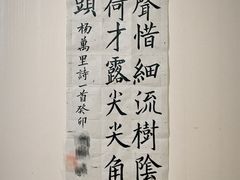 聲惜細流樹陰
荷才露尖尖角
頭
楊萬里詩一首癸卯